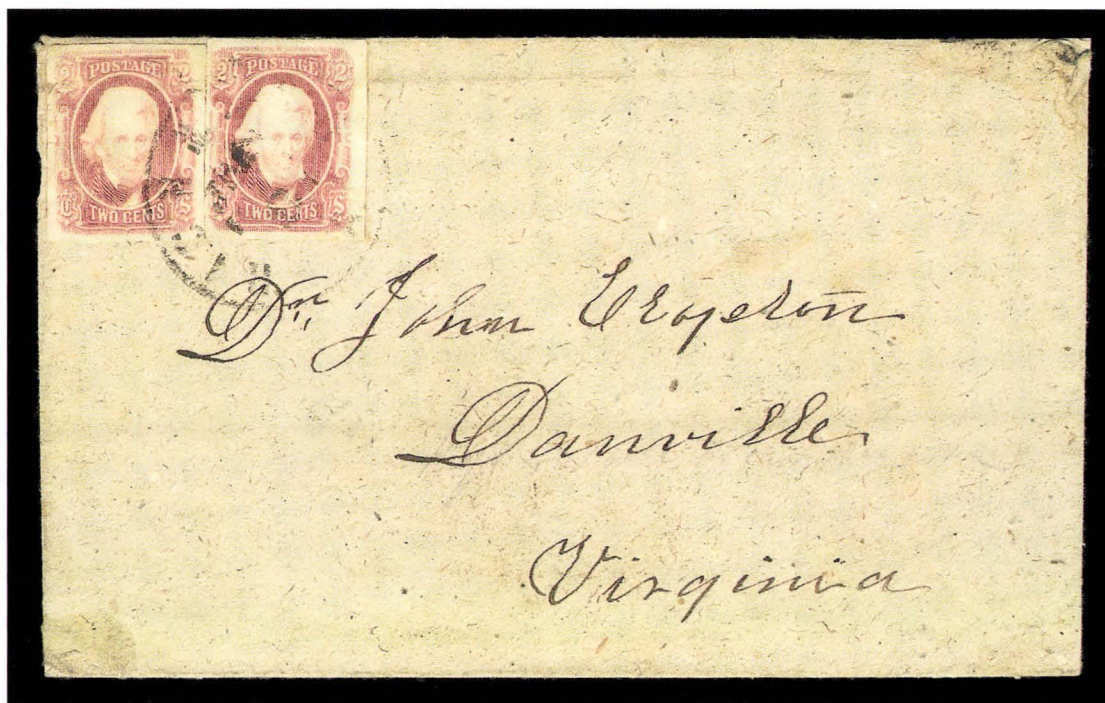 2 POSTAGE 2
CTS TWO CENTS
2 POSTAGE 2
TWO CENTS
Dr. John
Danville
Virginia